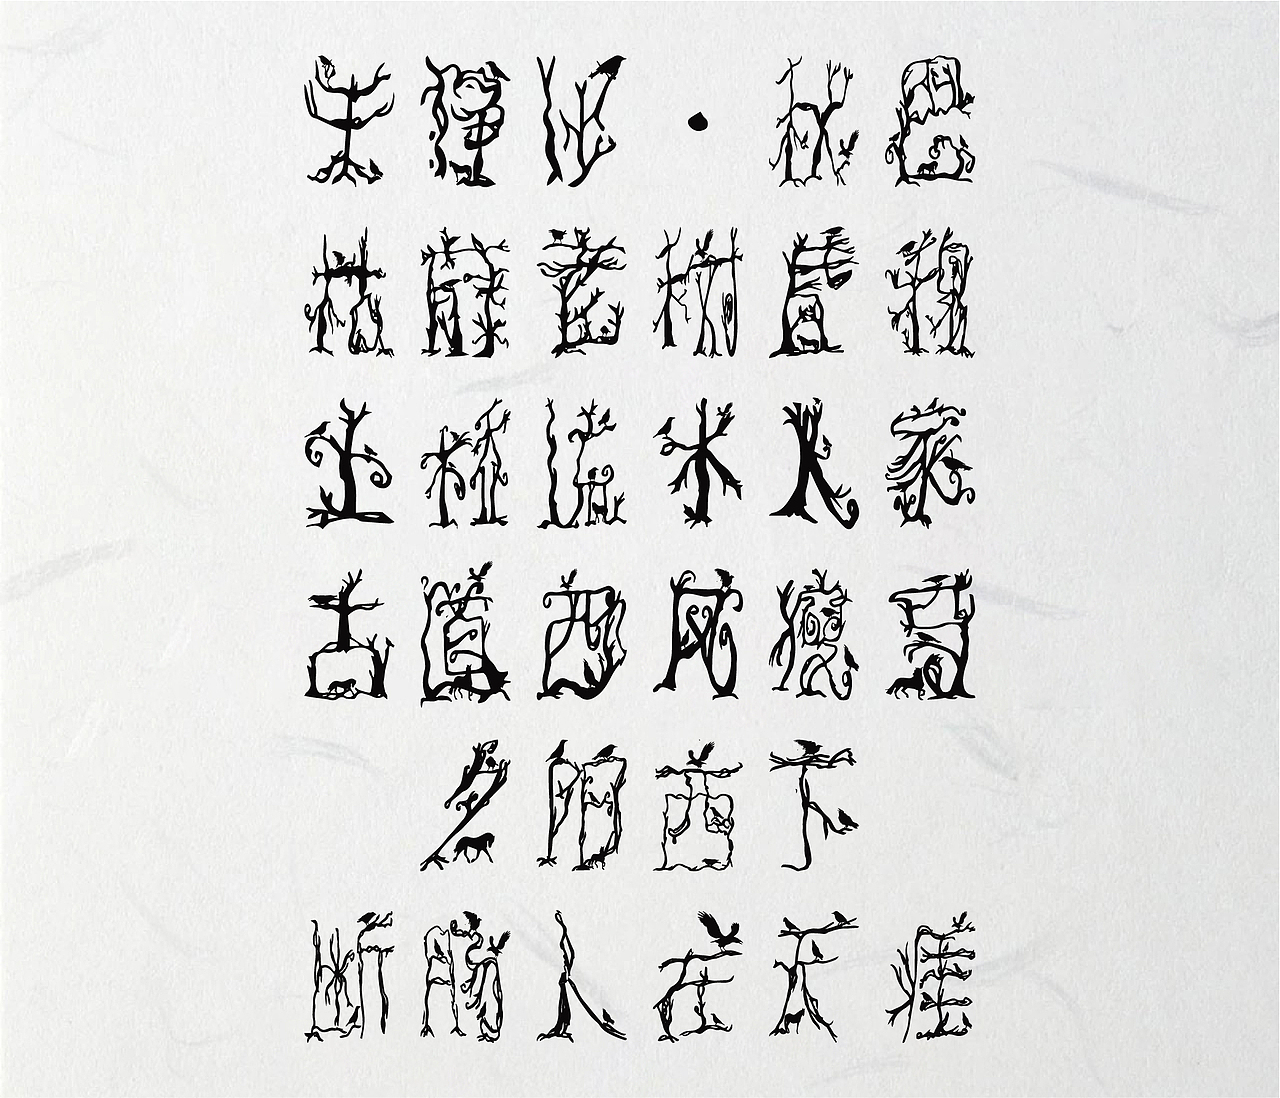 天净沙·秋思
枯藤老树昏鸦
小桥流水人家
古道西风瘦马
夕阳西下
断肠人在天涯